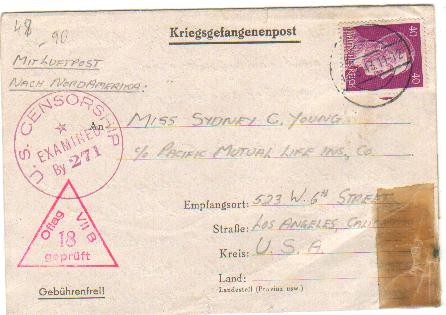 48
- 90
Kriegsgefangenenpost
MIT LUFTPOST
NACH NORDAMERIKA:
40 40
U. S. CENSORSHIP
EXAMINED
By 271
An MISS SYDNEY C. YOUNG
c/o PACIFIC MUTUAL LIFE INS. CO.
Empfangsort: 523 W. 6TH STREET
Straße: LOS ANGELES, CALIF
Kreis: U. S. A.
Land:
Landesteil (Provinz usw.)
Oflag VII B
18
geprüft
Gebührenfrei!